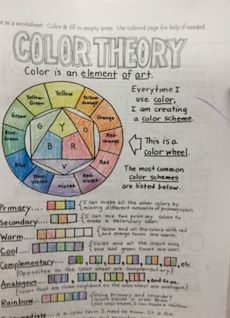 as a worksheet. Color & fill in empty areas. Use colored page for help if needed.
COLOR THEORY
Color is an element of art.
Everytime I
use color,
I am creating
a color scheme.
This is a
color wheel.
The most common
color schemes
are listed below.
Yellow
Yellow-Orange
Orange
Red-orange
Red
Red-Violet
Violet
Blue-violet
Blue
Blue-Green
Green
Yellow-Green
Y
O
R
V
B
G
Primary....
(I can make all the other colors by
mixing different amounts of primary color)
Secondary...
(I can mix two primary colors to
make a secondary color.
Warm....
(Yellow and all the colors with red
and orange tones are warm.
Cool....
(Violet and all the colors with
blue and green tones are cool.
Complementary....
etc
(Opposites on the Color wheel are complementary)
Analogous..
and so on.
(Colors that are next to each other on the color wheel are analogous)
Rainbow...